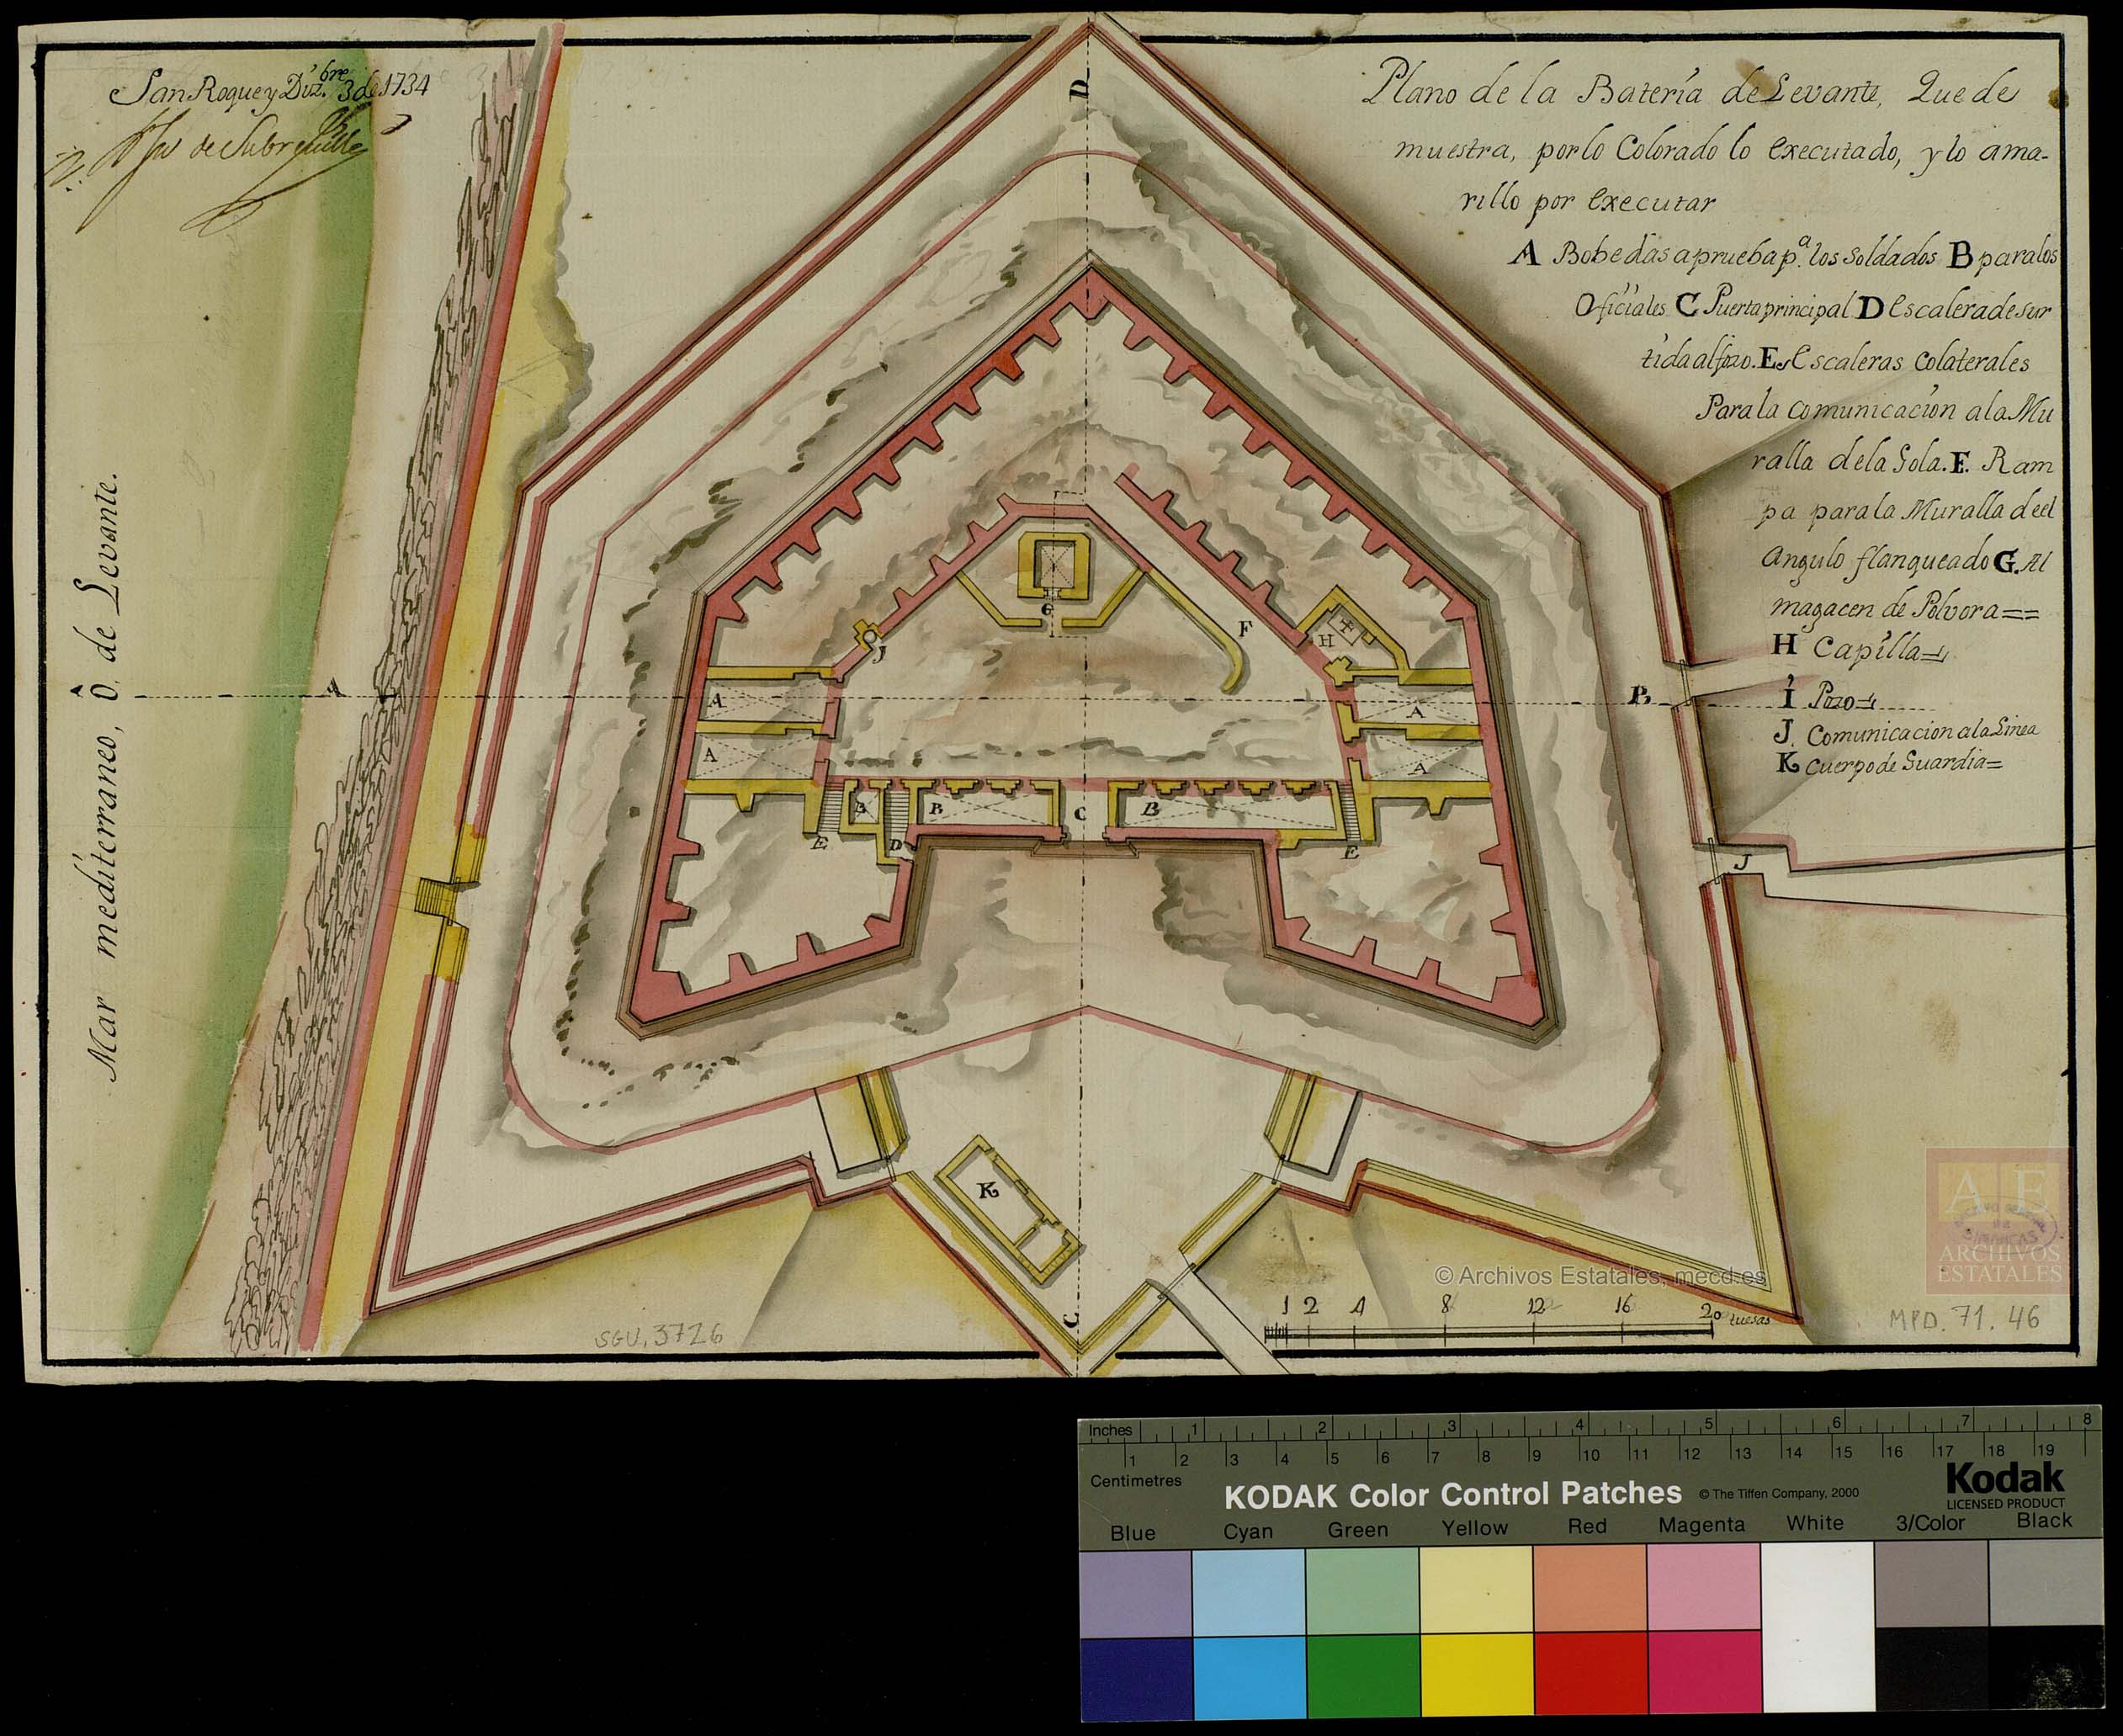 San Roque y Diz.bre 3 de 1734
Plano de la Batería de Levante, Que de
muestra, por lo Colorado lo executado, y lo ama-
rillo por executar
A Bobedas a prueba p.a los soldados B para los
Oficiales C Puerta principal D Escalera de sur
tida al foso. E Escaleras Colaterales
Para la comunicacion a la Mu
ralla de la Gola. F. Ram
pa para la Muralla de el
Angulo flanqueado G. Al
magacen de Polvora==
H Capilla=
I Pozo=
J. Comunicacion a la Linea
K Cuerpo de Guardia=
Mar mediterraneo, Ô de Levante.
D
G
F
H
J
A
B
A
A
A
A
B
B
C
B
E
D
E
J
K
C
1 2 4 8 12 16 20 tuesas
SGU, 3726
MPD. 71. 46
© Archivos Estatales, mecd.es
AE
ARCHIVOS
ESTATALES
SIMANCAS
Inches 1 2 3 4 5 6 7 8
1 2 3 4 5 6 7 8 9 10 11 12 13 14 15 16 17 18 19
Centimetres
KODAK Color Control Patches © The Tiffen Company, 2000
Kodak
LICENSED PRODUCT
Blue Cyan Green Yellow Red Magenta White 3/Color Black